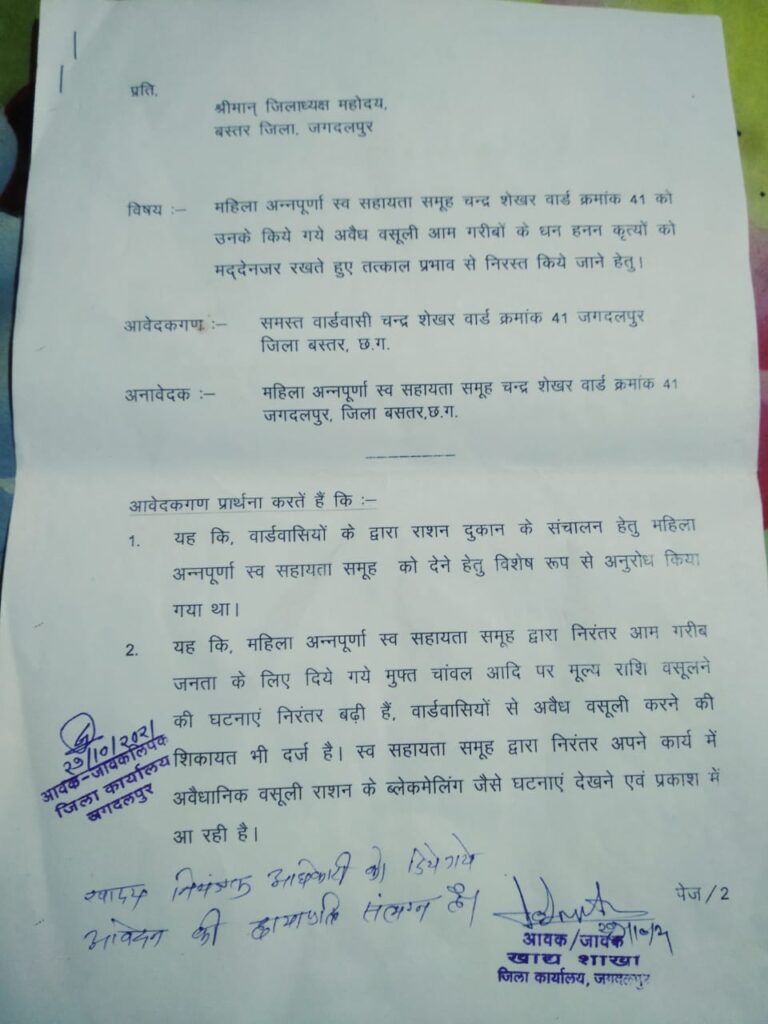 प्रति,
श्रीमान् जिलाध्यक्ष महोदय,
बस्तर जिला, जगदलपुर
विषय :– महिला अन्नपूर्णा स्व सहायता समूह चन्द्र शेखर वार्ड क्रमांक 41 को
उनके किये गये अवैध वसूली आम गरीबों के धन हनन कृत्यों को
मद्देनजर रखते हुए तत्काल प्रभाव से निरस्त किये जाने हेतु।
आवेदकगण :– समस्त वार्डवासी चन्द्र शेखर वार्ड क्रमांक 41 जगदलपुर
जिला बस्तर, छ.ग.
अनावेदक :– महिला अन्नपूर्णा स्व सहायता समूह चन्द्र शेखर वार्ड क्रमांक 41
जगदलपुर, जिला बसतर,छ.ग.
आवेदकगण प्रार्थना करतें हैं कि :–
1. यह कि, वार्डवासियों के द्वारा राशन दुकान के संचालन हेतु महिला
अन्नपूर्णा स्व सहायता समूह को देने हेतु विशेष रूप से अनुरोध किया
गया था।
2. यह कि, महिला अन्नपूर्णा स्व सहायता समूह द्वारा निरंतर आम गरीब
जनता के लिए दिये गये मुफ्त चांवल आदि पर मूल्य राशि वसूलने
की घटनाएं निरंतर बढ़ी हैं, वार्डवासियों से अवैध वसूली करने की
शिकायत भी दर्ज है। स्व सहायता समूह द्वारा निरंतर अपने कार्य में
अवैधानिक वसूली राशन के ब्लेकमेलिंग जैसे घटनाएं देखने एवं प्रकाश में
आ रही है।
29/10/2021
आवक-जावकलिपिक
जिला कार्यालय
जगदलपुर
खाद्य नियंत्रक अधिकारी को दिये गये
आवेदन की छायाप्रति संलग्न है।
पेज/2
आवक/जावक
खाद्य शाखा
जिला कार्यालय, जगदलपुर